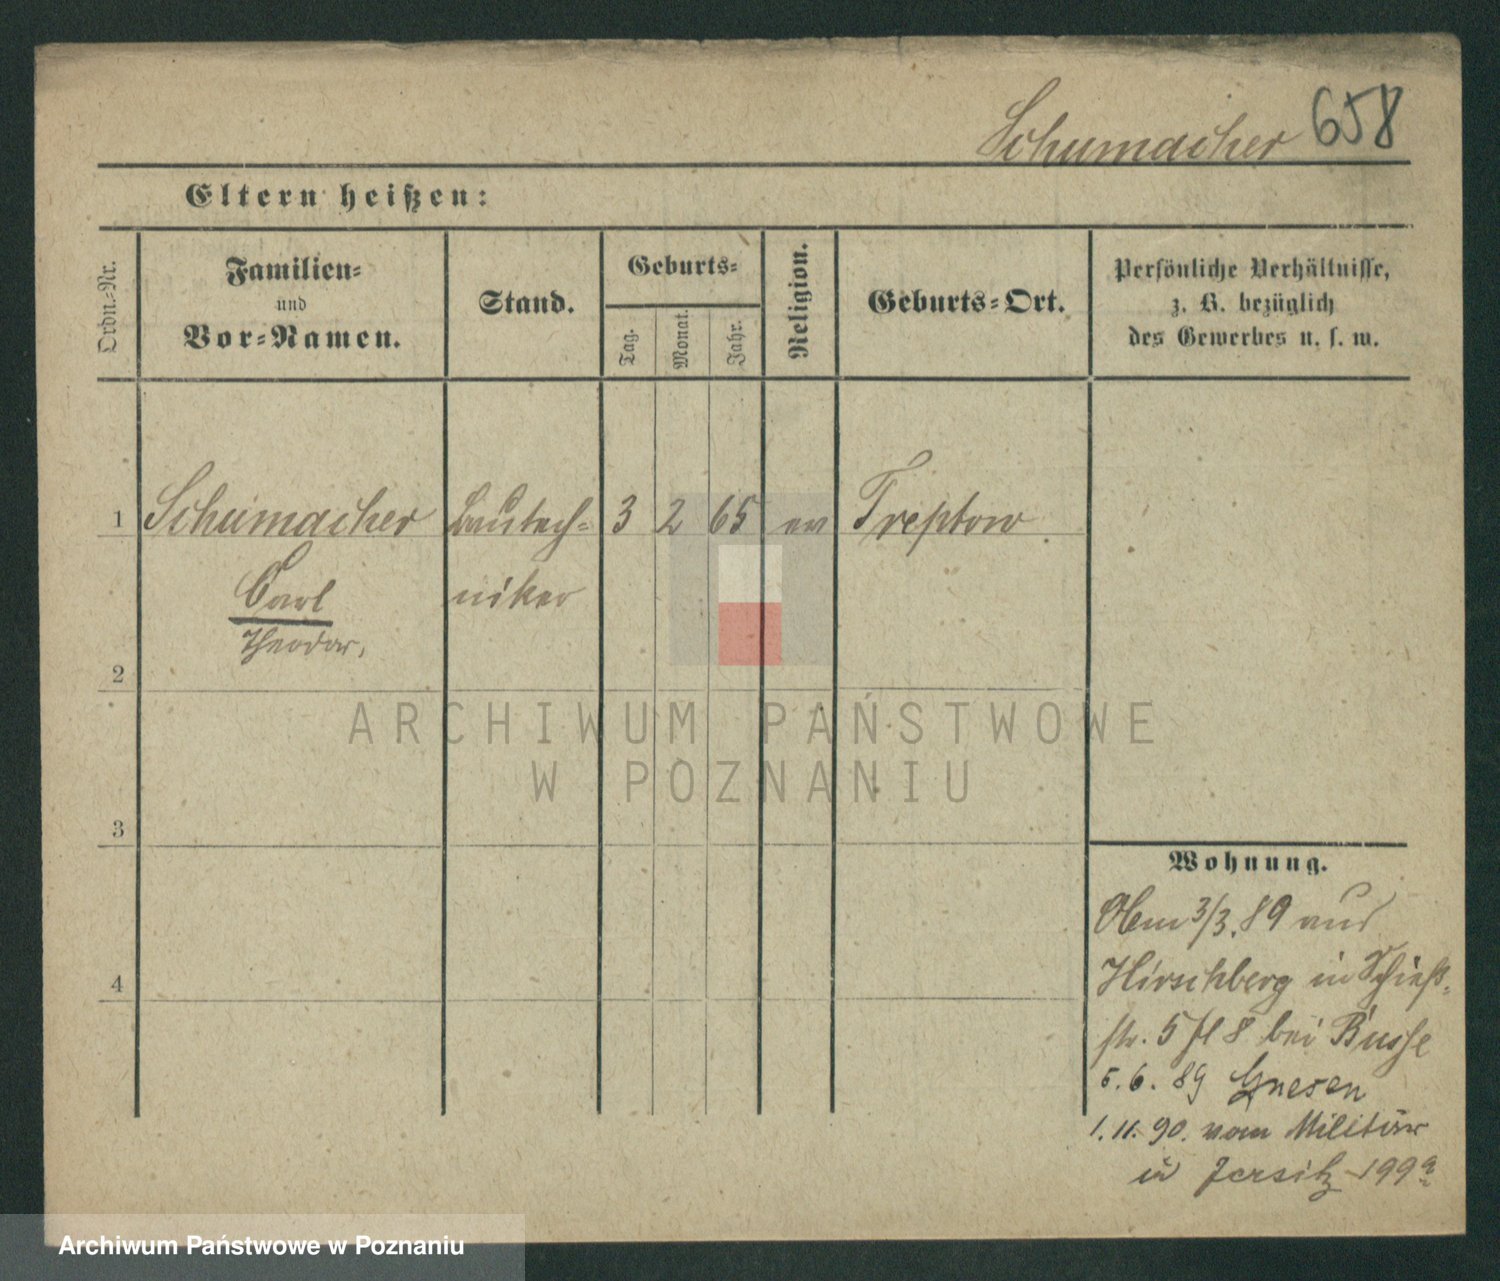 Schumacher 658
Eltern heißen:
Ordn.-Nr.
Familien-
und
Vor-Namen.
Stand.
Geburts-
Tag.
Monat.
Jahr.
Religion.
Geburts-Ort.
Persönliche Verhältnisse,
z. B. bezüglich
des Gewerbes u. s. w.
1 Schumacher Bautech- 3 2 65 ev Treptow.
Carl niker
Theodor,
2
3
4
Wohnung.
3/3.89 aus
Hirschberg in Schieß-
str. 5 bei Busse
5.6.89 Gnesen
1.11.90. vom Militär
in Jersitz 199a
ARCHIWUM PAŃSTWOWE
W POZNANIU
Archiwum Państwowe w Poznaniu